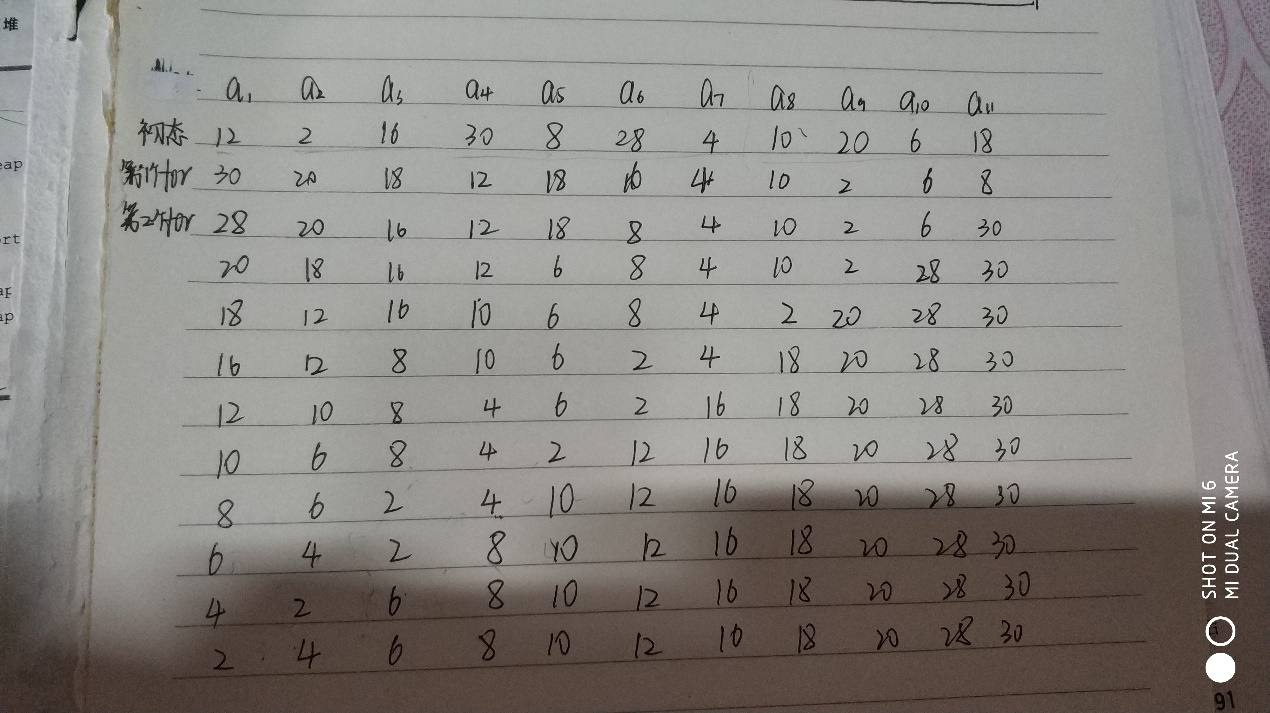 堆
eap
ort
ap
ap
a₁ a₂ a₃ a₄ a₅ a₆ a₇ a₈ a₉ a₁₀ a₁₁
初态 12 2 16 30 8 28 4 10 20 6 18
第1个for 30 20 18 12 18 16 4 10 2 6 8
第2个for 28 20 16 12 18 8 4 10 2 6 30
20 18 16 12 6 8 4 10 2 28 30
18 12 16 10 6 8 4 2 20 28 30
16 12 8 10 6 2 4 18 20 28 30
12 10 8 4 6 2 16 18 20 28 30
10 6 8 4 2 12 16 18 20 28 30
8 6 2 4 10 12 16 18 20 28 30
6 4 2 8 10 12 16 18 20 28 30
4 2 6 8 10 12 16 18 20 28 30
2 4 6 8 10 12 16 18 20 28 30
SHOT ON MI 6
MI DUAL CAMERA
91